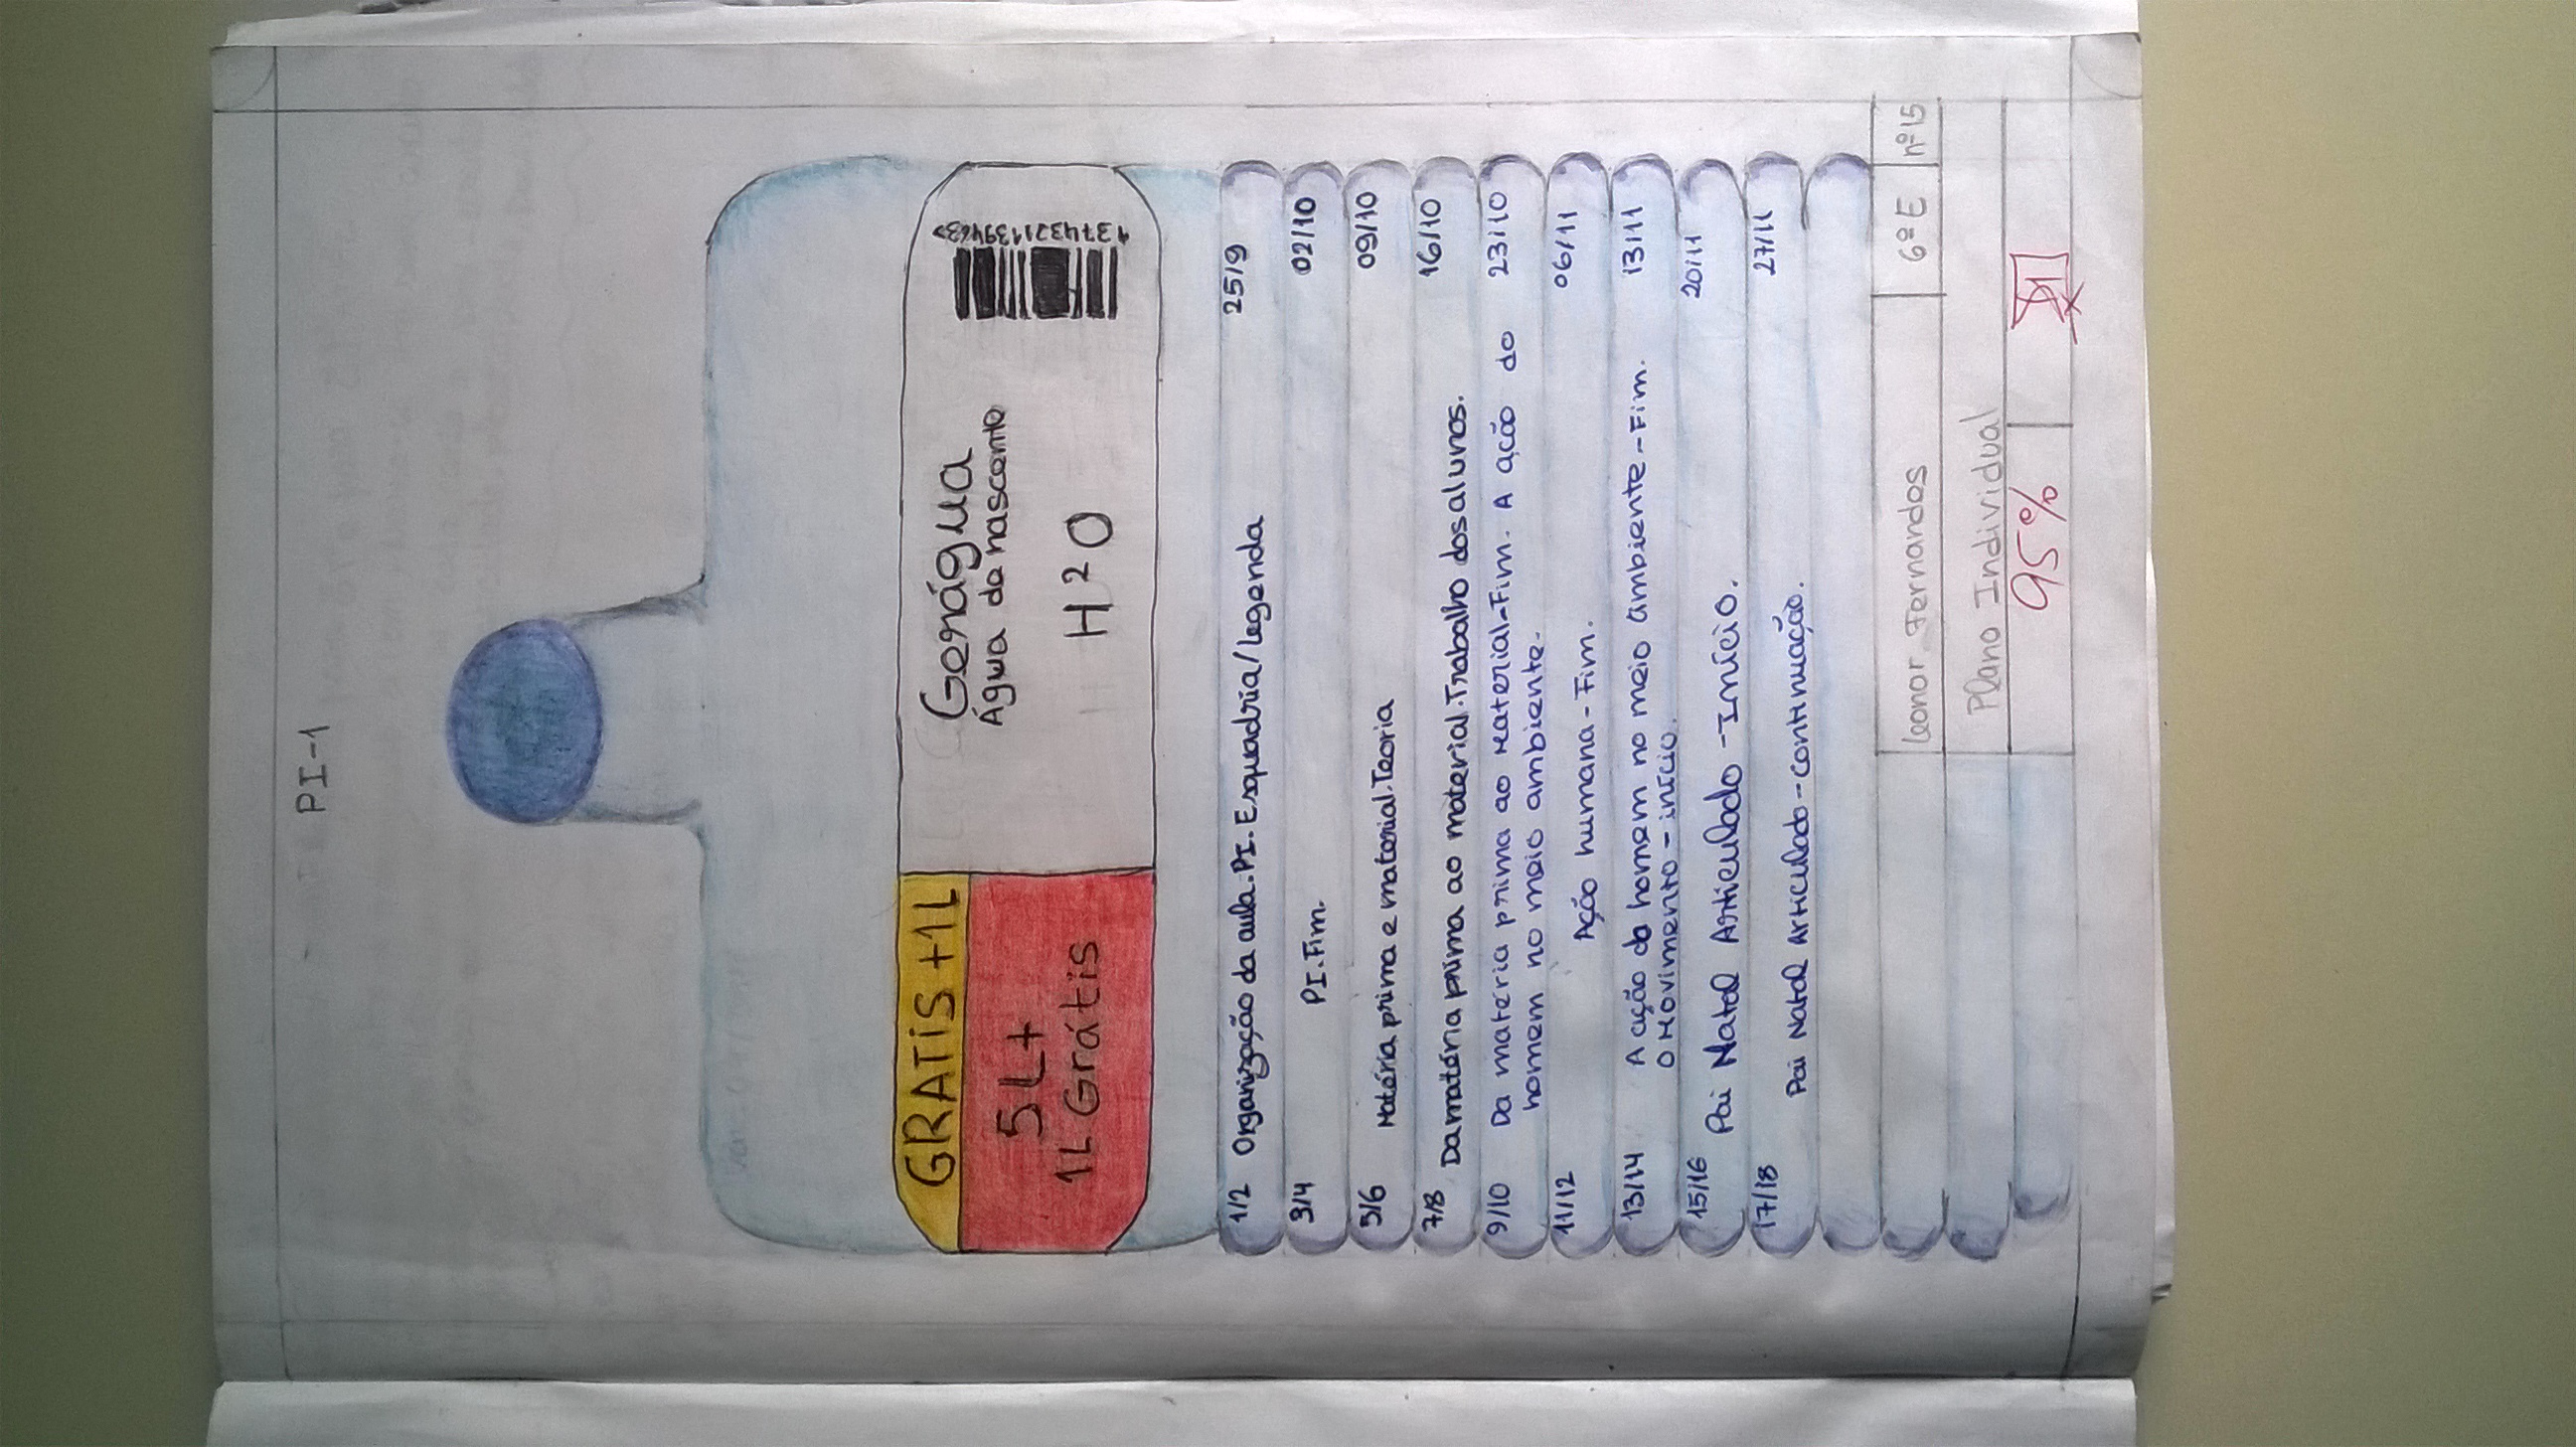 PI-1
GRATiS +1L
5L+
1L Grátis
Gerágua
Água de nascente
H2O
1/2 Organização da aula. PI. Esquadria/Legenda 25/9
3/4 PI. Fim. 02/10
5/6 Matéria prima e material. Teoria 09/10
7/8 Da matéria prima ao material. Trabalho dos alunos. 16/10
9/10 Da matéria prima ao material-Fim. A ação do 23/10
homem no meio ambiente.
11/12 Ação humana-Fim. 06/11
13/14 A ação do homem no meio ambiente-Fim. 13/11
O Movimento-início.
15/16 Pai Natal Articulado-Início. 20/11
17/18 Pai Natal Articulado-continuação. 27/11
Leonor Fernandes 6º E nº15
Plano Individual
95%